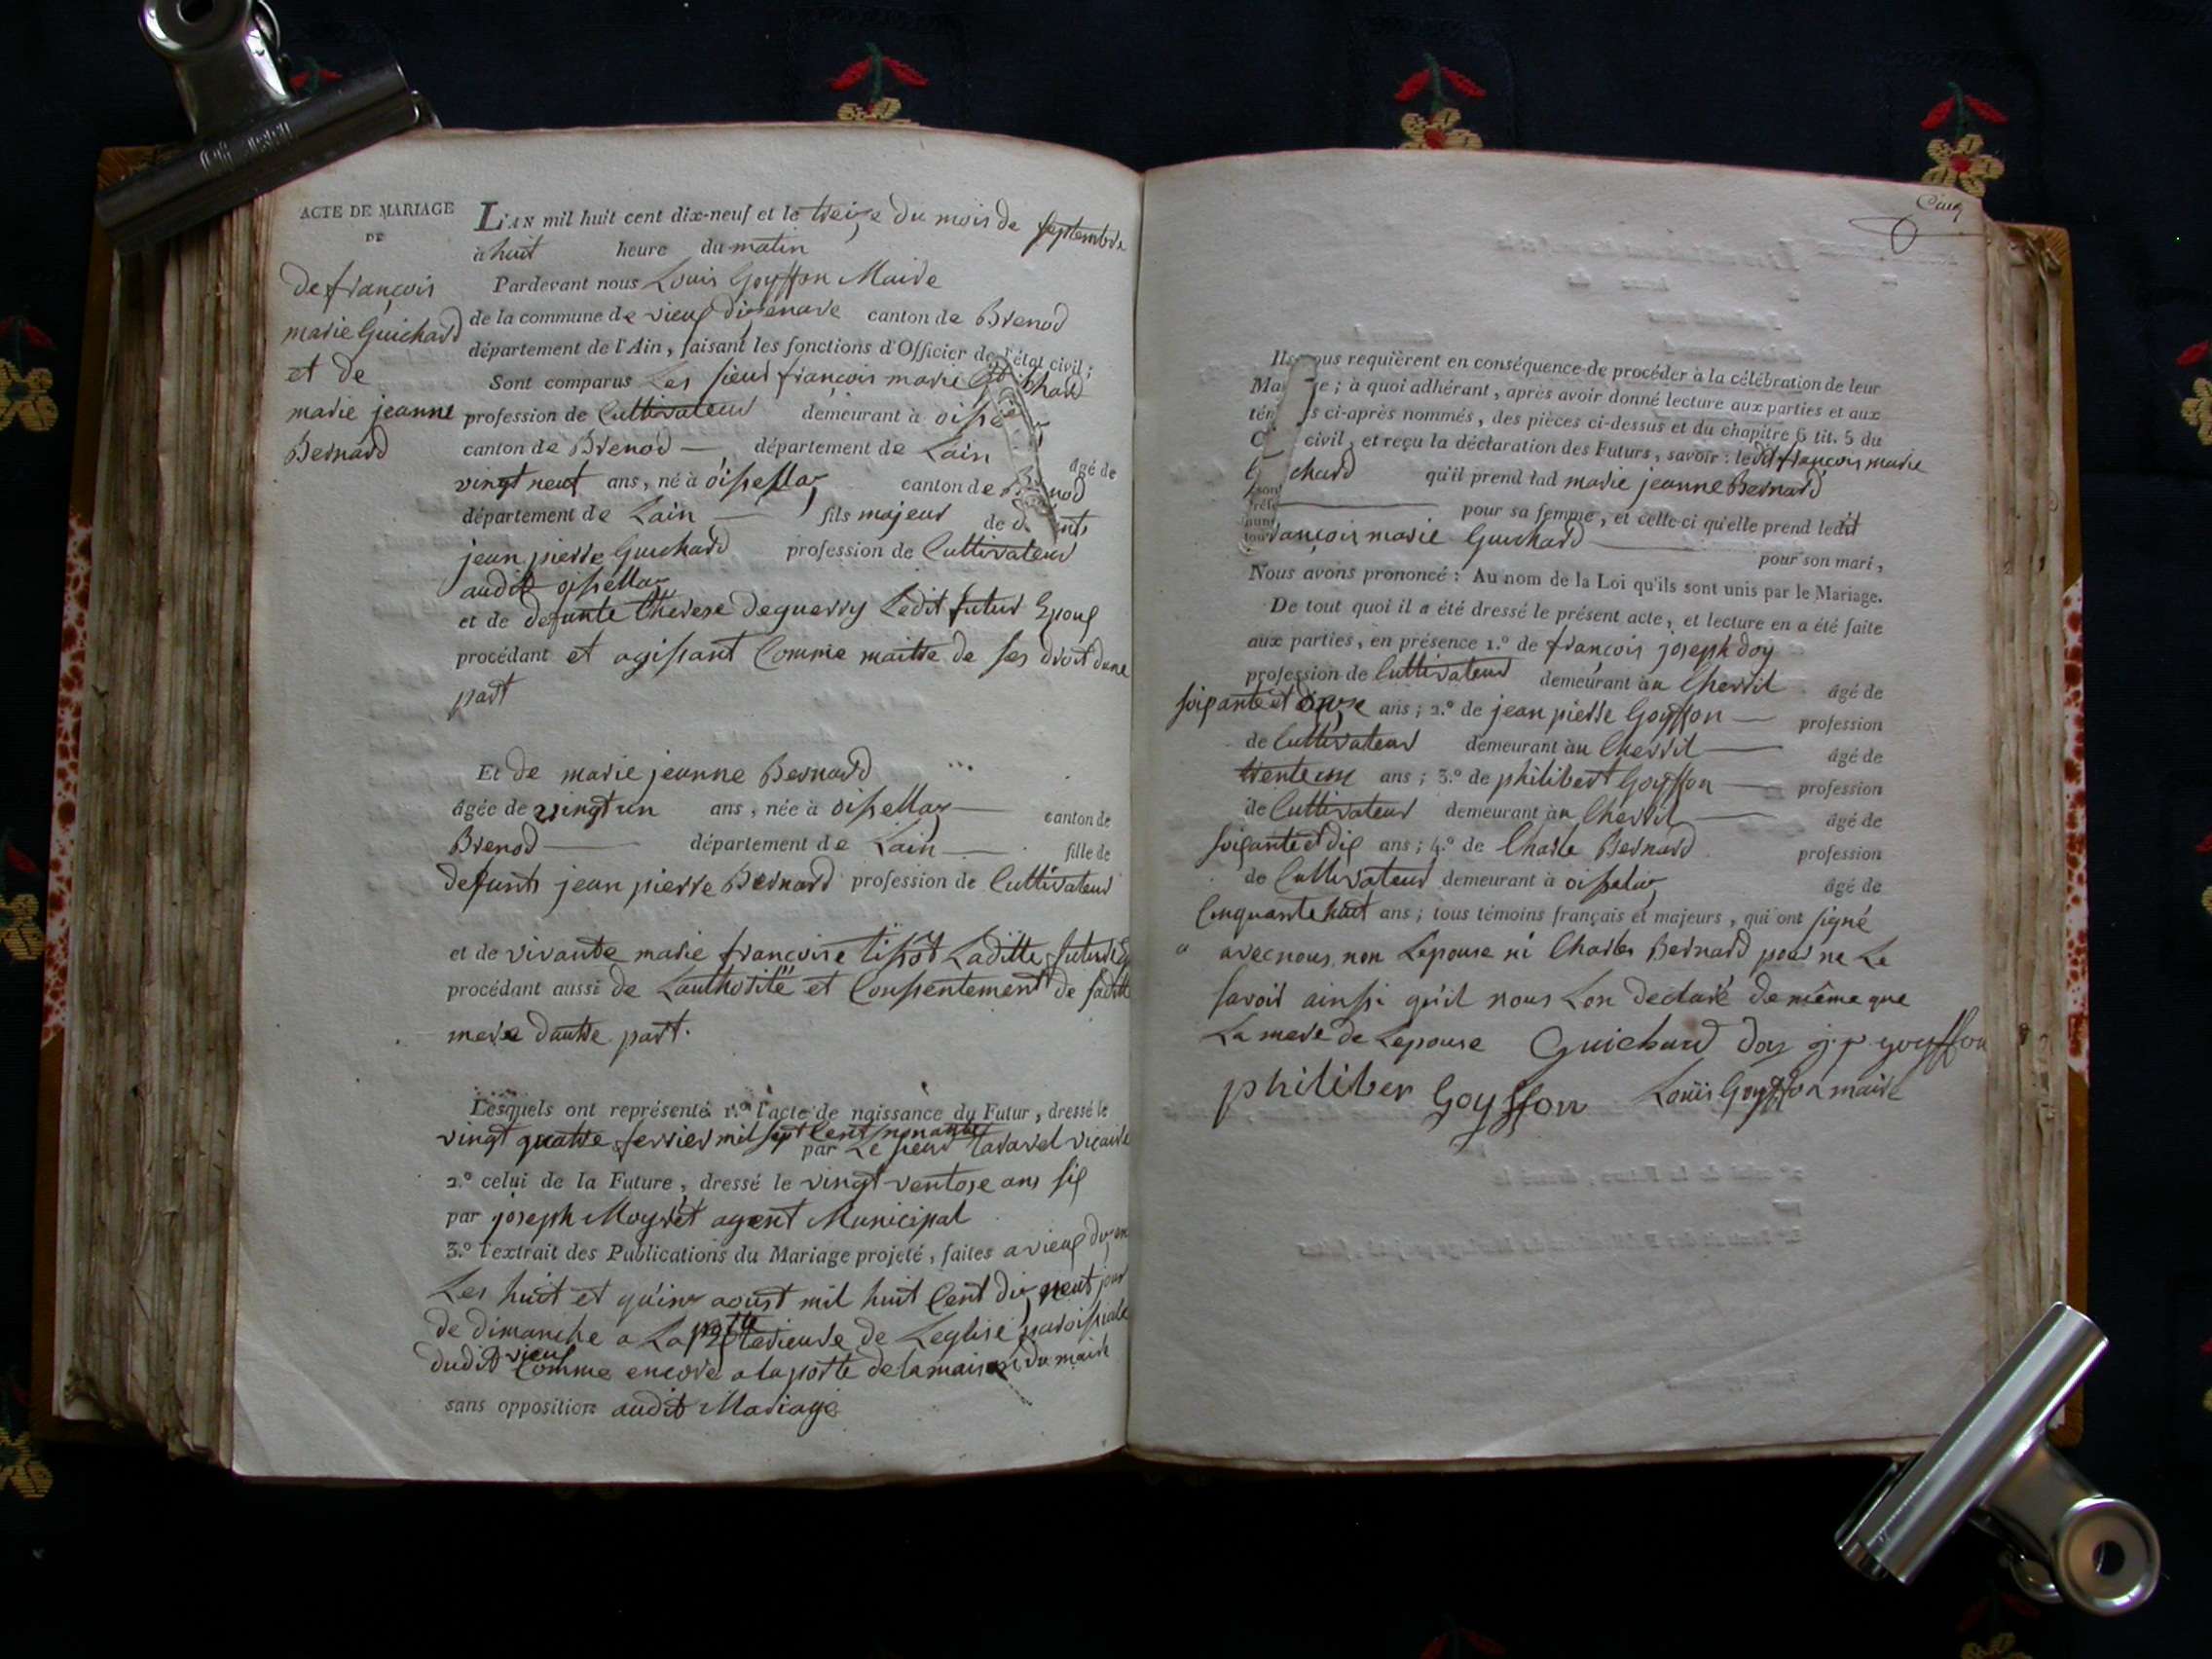 ACTE DE MARIAGE
DE
de françois
marie Guichard
et de
marie jeanne
Bernard
L'AN mil huit cent dix-neuf et le treize du mois de septembre
à huit heure du matin
Pardevant nous Louis Goyffon Maire
de la commune de vieux dizenave canton de Brenod
département de l'Ain, faisant les fonctions d'Officier de l'état civil;
Sont comparus Les sieur françois marie chard
profession de Cultivateur demeurant à
canton de Brenod département de Lain âgé de
vingt neuf ans, né à oissellaz canton de B nod
département de Lain fils majeur de d nts
jean pierre Guichard profession de Cultivateur
audit oissellaz
et de defunte Therese deguerry Ledit futur Epoux
procédant et agissant Comme maitre de ses droit dune
part
Et de marie jeanne Bernard
âgée de vingt un ans, née à oissellaz canton de
Brenod département de Lain fille de
defunts jean pierre Bernard profession de Cultivateur
et de vivante marie françoise tissot Laditte future
procédant aussi de Lauthorité et Conssentement de saditte
mere dautre part.
Lesquels ont représenté 1.º l'acte de naissance du Futur, dressé le
vingt quatre ferrier mil sept Cent nonante
par Le sieur tavavel vicaire
2.º celui de la Future, dressé le vingt ventose ans six
par joseph Moyret agent Municipal
3.º l'extrait des Publications du Mariage projeté, faites a vieux
Les huit et quinz aoust mil huit Cent dix neuf jour
de dimanche a La porte de Leglise paroissiale
dudit vieux Comme encore a la porte de la maison du maire
sans opposition audit Mariage
Cinq
Ils nous requièrent en conséquence de procéder à la célébration de leur
Ma ge; à quoi adhérant, après avoir donné lecture aux parties et aux
tém s ci-après nommés, des pièces ci-dessus et du chapitre 6 tit. 5 du
C civil, et reçu la déclaration des Futurs, savoir: ledit françois marie
G chard qu'il prend lad marie jeanne Bernard
pour sa femme, et celle-ci qu'elle prend ledit
françois marie Guichard pour son mari,
Nous avons prononcé: Au nom de la Loi qu'ils sont unis par le Mariage.
De tout quoi il a été dressé le présent acte, et lecture en a été faite
aux parties, en présence 1.º de françois joseph doy
profession de Cultivateur demeurant au Cherril âgé de
soixante et onze ans; 2.º de jean pierre Goyffon profession
de Cultivateur demeurant àu Cherril âgé de
trente un ans; 3.º de philibert Goyffon profession
de Cultivateur demeurant àu Cherril âgé de
soixante et dix ans; 4.º de Charle Bernard profession
de Cultivateur demeurant à oisselaz âgé de
Cinquante huit ans; tous témoins français et majeurs, qui ont signé
avec nous non Lepouse ni Charles Bernard pour ne Le
savoir ainssi qu'il nous Lon declaré de même que
La mere de Lepouse Guichard doy j. p goyffon
philiber Goyffon Louis Goyffon maire